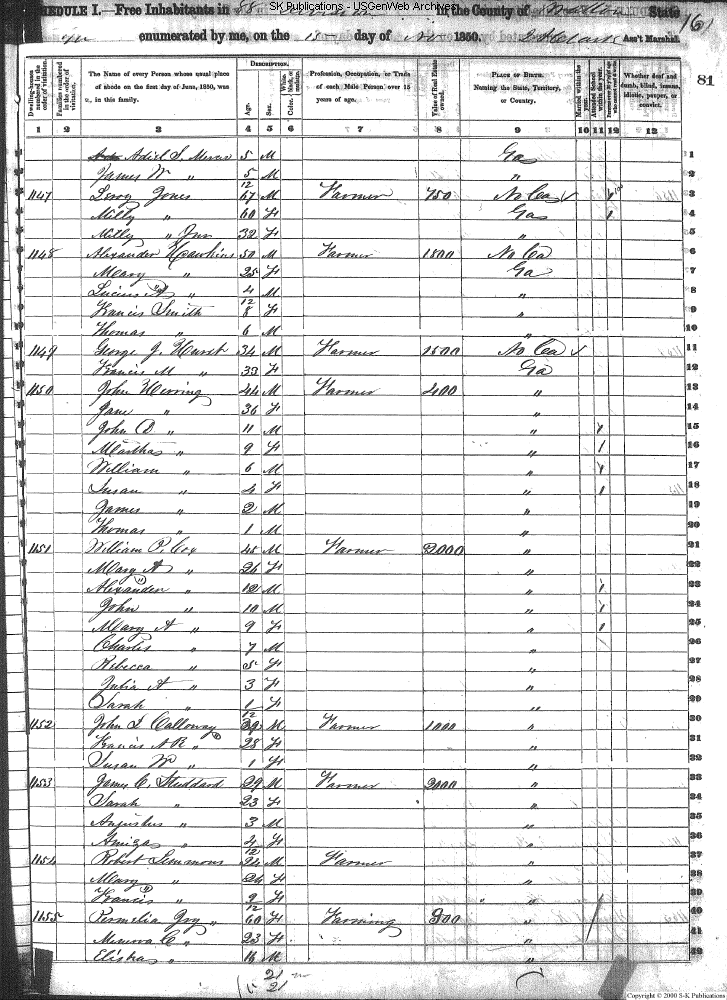 SK Publications - USGenWeb Archives
SCHEDULE I.—Free Inhabitants in 58 Division in the County of State
enumerated by me, on the 15 day of Nov 1850. Ass't Marshal.
161
81
Dwelling-houses numbered in the order of visitation.
Families numbered in the order of visitation.
The Name of every Person whose usual place of abode on the first day of June, 1850, was in this family.
DESCRIPTION.
Age.
Sex.
White, Color, black, or mulatto.
Profession, Occupation, or Trade of each Male Person over 15 years of age.
Value of Real Estate owned.
PLACE OF BIRTH.
Naming the State, Territory, or Country.
Married within the year.
Attended School within the year.
Whether deaf and dumb, blind, insane, idiotic, pauper, or convict.
1 2 3 4 5 6 7 8 9 10 11 12 13
Adiel S. 5 M Ga 1
James W " 5/12 M " 2
1147 Leroy Jones 67 M Farmer 750 No Ca 3
Milly " 60 F Ga 4
Milly " Jun 32 F " 5
1148 Alexander Hawkins 50 M Farmer 1800 No Ca 6
Mary " 25 F Ga 7
Lucius A " 4/12 M " 8
Francis Smith 8 F " 9
Thomas " 6 M " 10
1149 George J. Hurst 34 M Farmer 1500 No Ca 11
Francis M " 33 F Ga 12
1150 John Herring 44 M Farmer 400 " 13
Jane " 36 F " 14
John D " 11 M " 1 15
Martha " 9 F " 1 16
William " 6 M " 1 17
Susan " 4 F " 1 18
James " 2 M " 19
Thomas " 1 M " 20
1151 William P. Coy 45 M Farmer 2000 " 21
Mary A " 26 F " 22
Alexander " 12 M " 1 23
John " 10 M " 1 24
Mary A " 9 F " 1 25
Charles " 7 M " 26
Rebecca " 5 F " 27
Julia A " 3 F " 28
Sarah " 1/12 F " 29
1152 John I Calloway 39 M Farmer 1000 " 30
Francis A R " 28 F " 31
Susan W " 1 F " 32
1153 James C. Studdard 29 M Farmer 2000 " 33
Sarah " 23 F " 34
Augustus " 3 M " 35
" 4/12 F " 36
1154 Robert Simmons 24 M Farmer " 37
Mary " 24 F " 38
Francis " 9/12 F " 39
1155 Permelia Ivy " 60 F Farming 800 " 40
Minerva C " 23 F " 41
Elisha " 16 M " 42
21
21
Copyright © 2000 S-K Publications